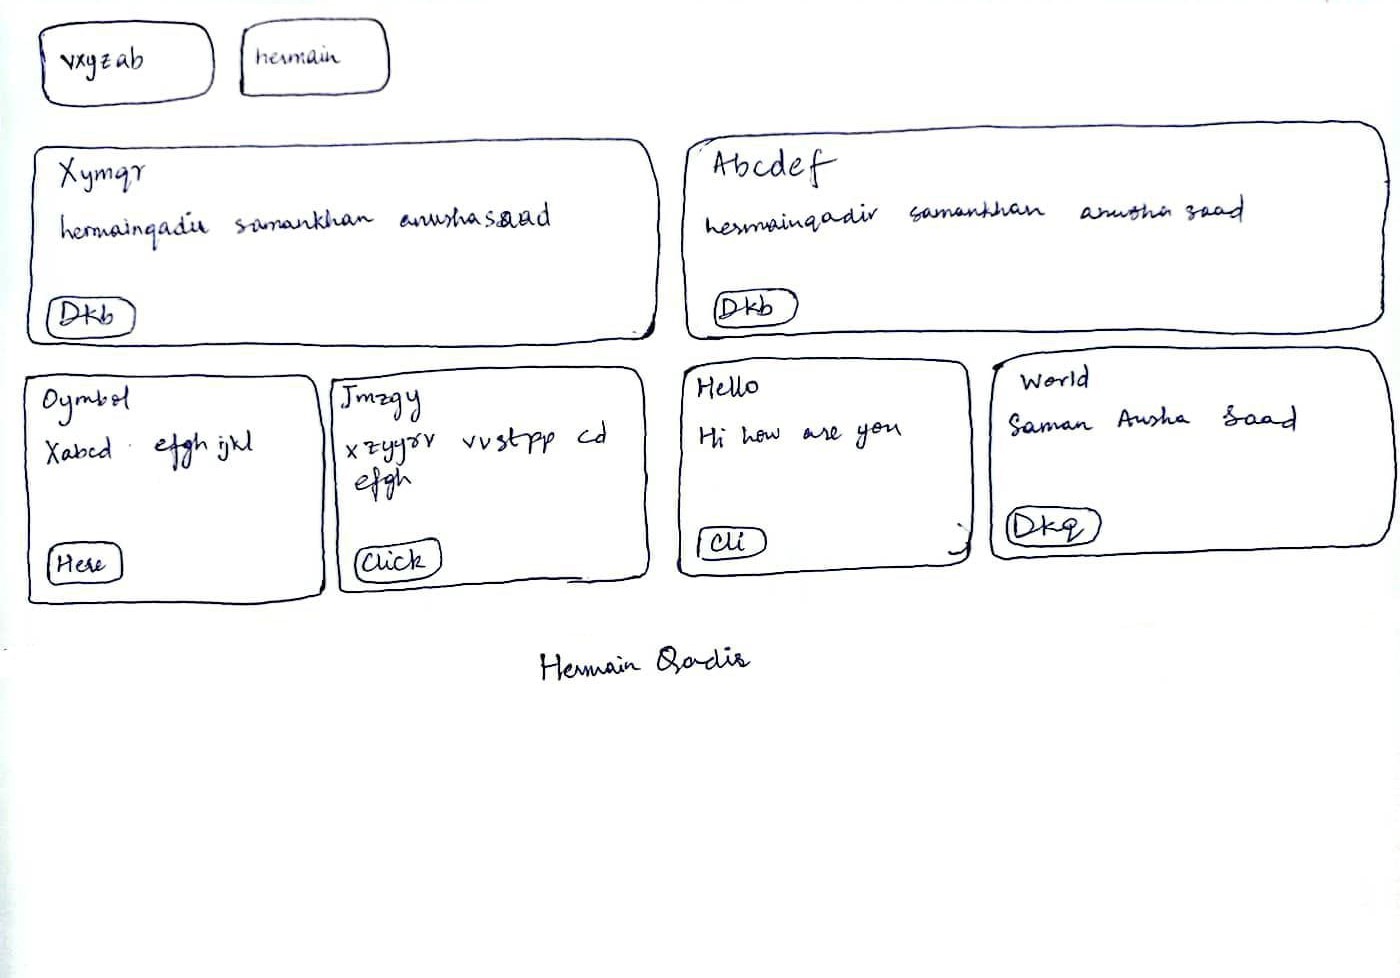 vxyzab
hermain
Xymqr
hermainqadir samankhan anushasaad
Dkb
Abcdef
hermainqadir samankhan anusha saad
Dkb
Oymbol
Xabcd efgh ijkl
Here
Jmzgy
xzyyrv vvstpp cd
efgh
Click
Hello
Hi how are you
Cli
World
Saman Ausha Saad
Dkq
Hermain Qadir